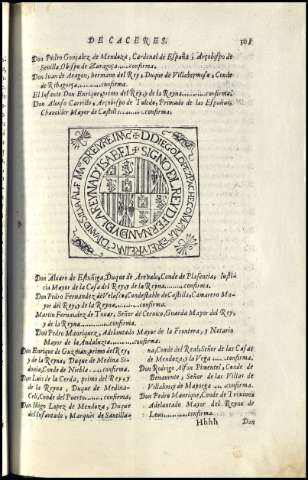 DE CACERES. 308
Don Pedro Gonzalez de Mendoza, Cardenal de España, Arzobispo de
Sevilla, Obispo de Zaragoza......confirma.
Don Iuan de Aragon, hermano del Rey, Duque de Villahermosa, Conde
de Ribagorza...............confirma.
El Infante Don Enrique, primo del Rey, y de la Reyna.........confirma.
Don Alonso Carrillo, Arzobispo de Toledo, Primado de las Españas,
Chanciller Mayor de Castilla.........confirma.
SIGNO DEL REY DON FERNANDO
Don Alvaro de Estuñiga, Duque de Arevalo, Conde de Plasencia, Iusti-
cia Mayor de la Casa del Rey, y de la Reyna.........confirma.
Don Pedro Fernandez de Velasco, Condestable de Castilla, Camarero Ma-
yor del Rey, y de la Reyna.........confirma.
Martin Fernandez de Tovar, Señor de Cevico, Guarda Mayor del Rey,
y de la Reyna.........confirma.
Don Pedro Manriquez, Adelantado Mayor de la Frontera, y Notario
Mayor de la Andaluzia.........confirma.
Don Enrique de Guzman, primo del Rey,
y de la Reyna, Duque de Medina Si-
donia, Conde de Niebla ...confirma.
Don Luis de la Cerda, primo del Rey, y
de la Reyna, Duque de Medina-
Celi, Conde del Puerto......confirma.
Don Iñigo Lopez de Mendoza, Duque
del Infantado, Marques de Santilla-
na, Conde del Real: Señor de las Casas
de Mendoza, y la Vega ....confirma.
Don Rodrigo Alfon Pimentel, Conde de
Benavente, Señor de las Villas de
Villalon, y de Mayorga ...confirma.
Don Pedro Manrique, Conde de Trevinno
Adelantado Mayor del Reyno de
Leon............confirma.
Hhhh Don